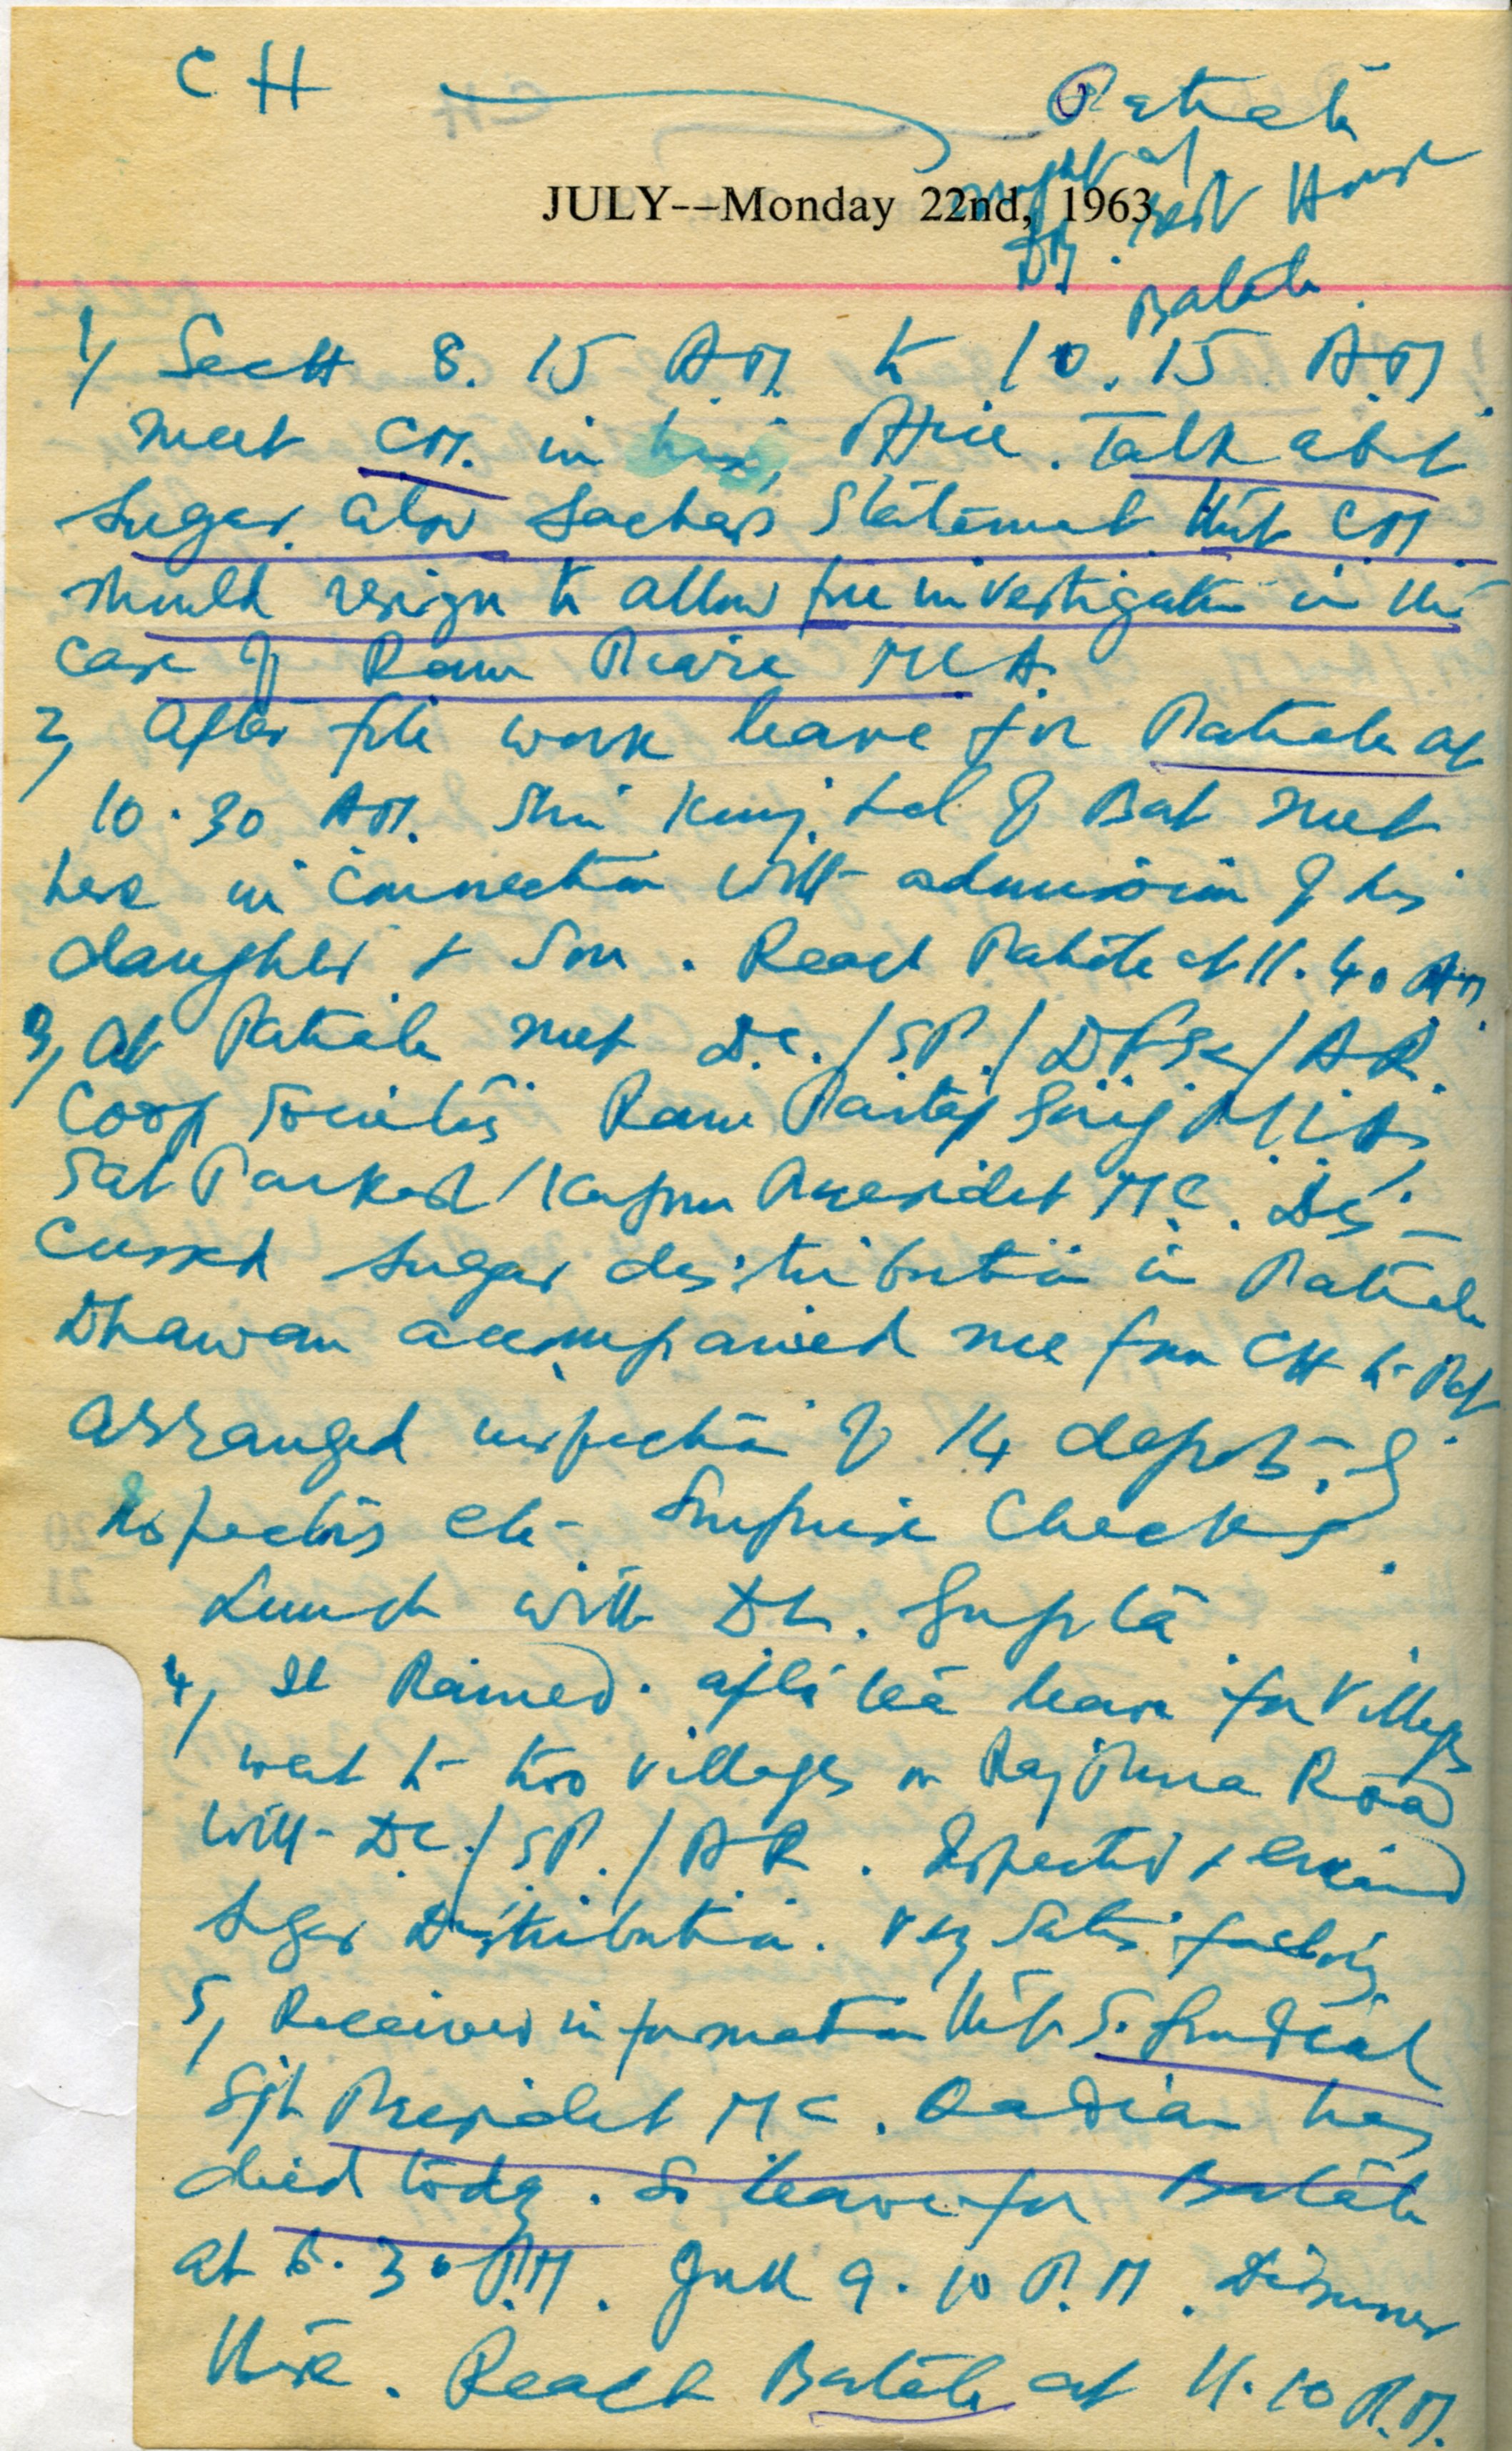 CH Patiala
Night at
JULY--Monday 22nd, 1963
Rest House
Batala.
1, Sectt 8.15 A.M. to 10.15 A.M.
meet CM. in his Office. Talk abt
Sugar. also Sachar's Statement that CM
should resign to allow free investigation in the
case of Ram Piara MLA.
2, After file work leave for Patiala at
10.30 AM. Shri Kunj Lal of Bat met
here in connection with admission of his
daughter & Son. Reach Patiala at 11.40 AM.
3, At Patiala met D.C./SP./DFSC/AR.
Coop Societies Ram Partap Garg M.L.A.,
Sat Parkash Kapur President M.C. Dis-
cussed Sugar distribution in Patiala
Dhawan accompanied me from CH to Pat.
arranged inspection of 14 depots. I
Inspectors etc - Surprise Checks.
Lunch with Dr. Gupta
4, It Rained. after tea leave for Villages
went to two villages on Rajpura Road
with D.C./SP./AR. Inspected &
Sugar Distribution. Very Satisfactory
5, Received information that S. Gurdial
Sgh President MC. Qadian has
died today. So leave for Batala
at 6.30 P.M. Jull 9.10 P.M. Dinner
there. Reach Batala at 11.10 P.M.